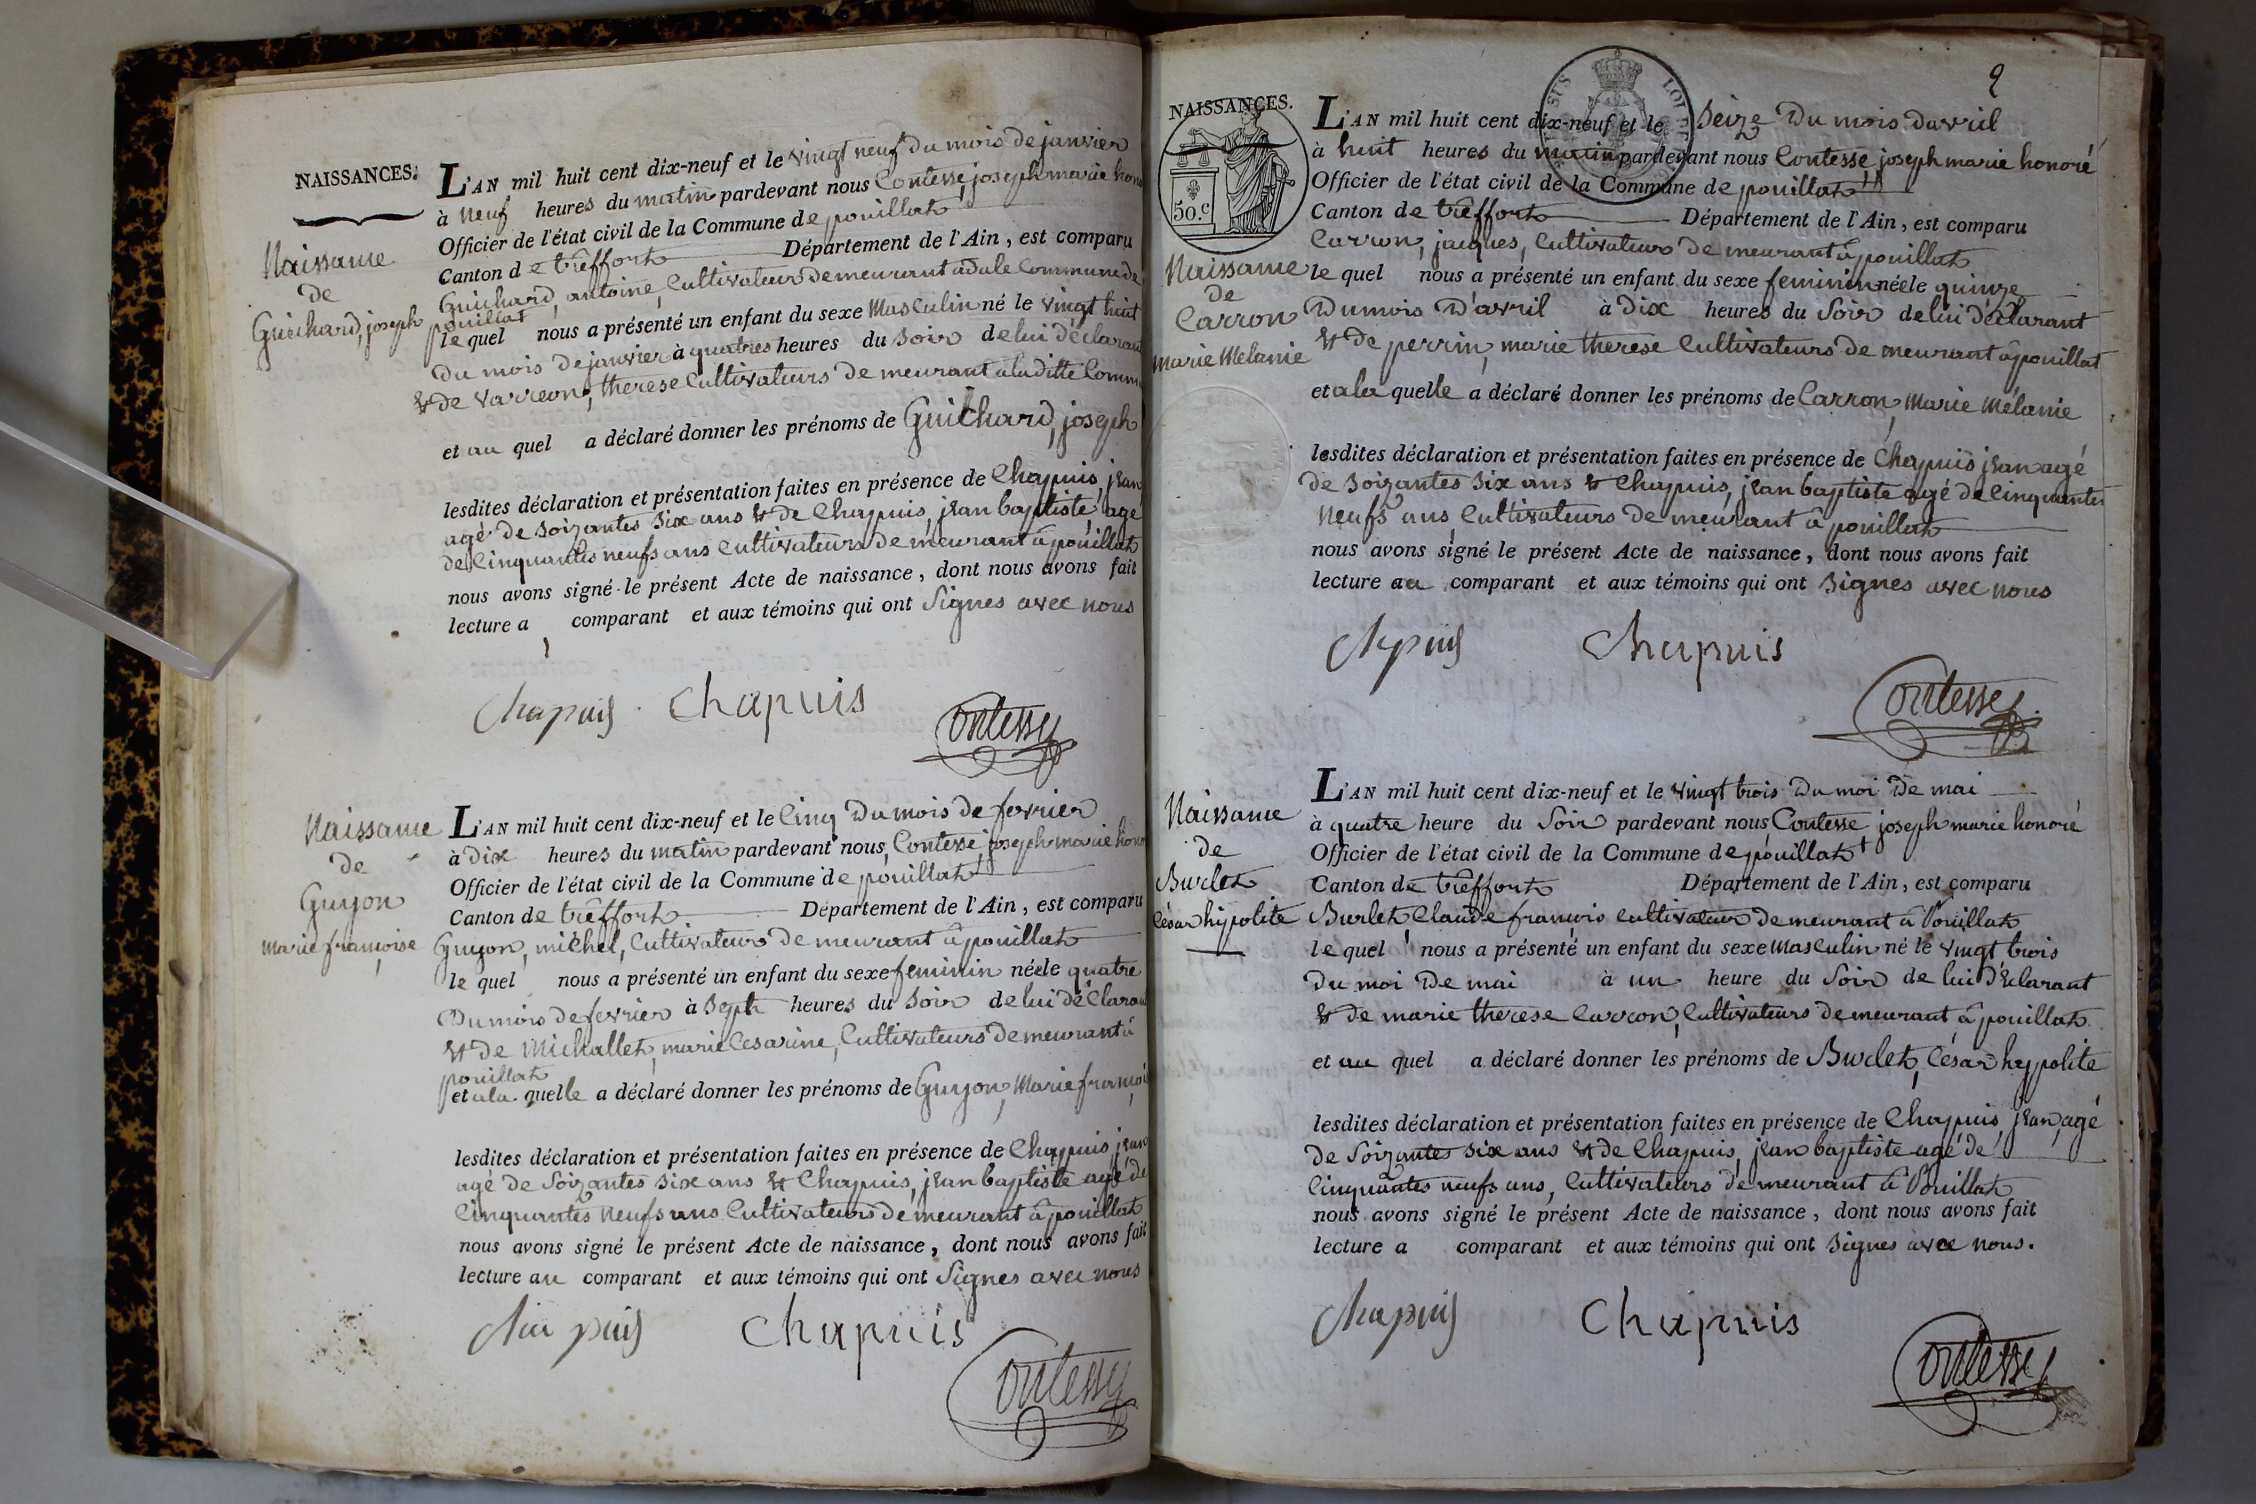 NAISSANCES.
Naissance
de
Guichard, joseph
L'AN mil huit cent dix-neuf et le vingt neuf du mois de janvier
à neuf heures du matin pardevant nous Contesse, joseph marie hono
Officier de l'état civil de la Commune de pouillat
Canton de trêffort Département de l'Ain, est comparu
Guichard, antoine, Cultivateur demeurant à Commune de
pouillat
le quel nous a présenté un enfant du sexe masculin né le vingt huit
du mois de janvier à quatres heures du soir de lui déclarant
& de varreon, therese Cultivateurs demeurant a laditte Comm
et au quel a déclaré donner les prénoms de Guichard, joseph
lesdites déclaration et présentation faites en présence de Chapuis, jean
agé de soizantes six ans & de Chapuis, jean baptiste, agé
de Cinquantes neufs ans Cultivateurs demeurant â pouillat
nous avons signé le présent Acte de naissance, dont nous avons fait
lecture a comparant et aux témoins qui ont signes avec nous
Chapuis Chapuis
Contesse
Naissance
de
Guyon
marie françoise
L'AN mil huit cent dix-neuf et le Cinq du mois de fevrier
à dix heures du matin pardevant nous, Contesse joseph marie hono
Officier de l'état civil de la Commune de pouillat
Canton de trêffort Département de l'Ain, est comparu
Guyon, michel, Cultivateur demeurant â pouillat
le quel nous a présenté un enfant du sexe feminin néele quatre
du mois de fevrier à Sept heures du soir de lui déClarant
& de Michallet, marie Cesarine, Cultivateurs demeurant à
pouillat
et ala quelle a déclaré donner les prénoms de Guyon, Marie franço
lesdites déclaration et présentation faites en présence de Chapuis, jean
agé de Soizantes six ans & Chapuis, jean baptiste agé de
Cinquantes neufs ans Cultivateurs demeurant â pouillat
nous avons signé le présent Acte de naissance, dont nous avons fait
lecture au comparant et aux témoins qui ont Signes avec nous
Chapuis Chapuis
Contesse
2
NAISSANCES.
50.c
Naissance
de
Carron
Marie Melanie
L'AN mil huit cent dix-neuf et le Seize du mois davril
à huit heures du matin pardevant nous Contesse, joseph marie honoré
Officier de l'état civil de la Commune de pouillat
Canton de trêffort Département de l'Ain, est comparu
Carron, jacques, Cultivateur demeurant â pouillat
le quel nous a présenté un enfant du sexe feminin néele quinze
Du mois D'avril à Dix heures du Soir de lui déclarant
& de perrin, marie therese Cultivateurs demeurant â pouillat
et ala quelle a déclaré donner les prénoms de Carron, Marie Mélanie
lesdites déclaration et présentation faites en présence de Chapuis jean agé
de soizantes six ans & Chapuis, jean baptiste agé de Cinquantes
neufs ans Cultivateurs demeurant â pouillat
nous avons signé le présent Acte de naissance, dont nous avons fait
lecture au comparant et aux témoins qui ont signes avec nous
Chapuis Chapuis
Contesse
Naissance
de
Burlet
César hypolite
L'AN mil huit cent dix-neuf et le vingt trois Du moi de mai
à quatre heure du Soir pardevant nous, Contesse, joseph marie honoré
Officier de l'état civil de la Commune de pouillat
Canton de trêffort Département de l'Ain, est comparu
Burlet, Claude françois Cultivateur demeurant â Pouillat
le quel nous a présenté un enfant du sexe masculin né le vingt trois
du moi de mai à un heure du Soir de lui déclarant
& de marie therese Carron, Cultivateurs demeurant â pouillat
et au quel a déclaré donner les prénoms de Burlet, César hypolite
lesdites déclaration et présentation faites en présence de Chapuis, jean, agé
de Soizantes six ans & de Chapuis, jean baptiste agé de
Cinquantes neufs ans, Cultivateurs demeurant â Pouillat
nous avons signé le présent Acte de naissance, dont nous avons fait
lecture a comparant et aux témoins qui ont signes avec nous.
Chapuis Chapuis
Contesse